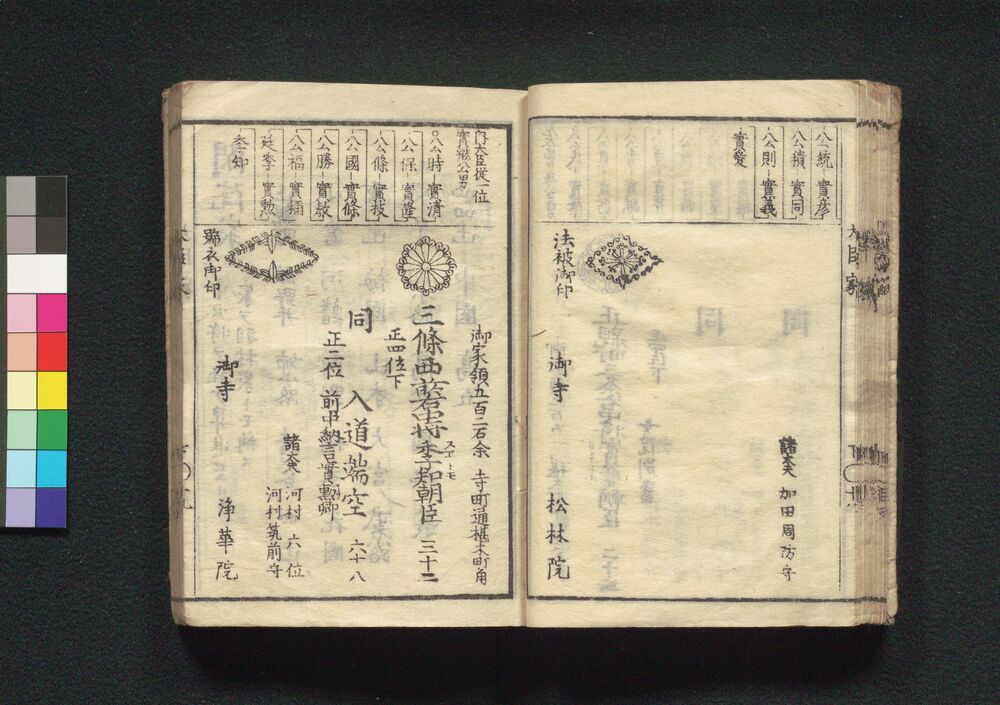 公統 實彦
公積 實同
公則 實義
實愛
諸大夫 加田周防守
法被御印
御寺 松林院
内大臣從一位
實㳟公男
公時 實清
公保 實隆
公條 實枝
公國 實條
公勝 實教
公福 實稱
廷季 實勲
季知
御家領五百二石余 寺町通椹木町角
三條西前少将季知朝臣 三十二
スエトモ
正四位下
同 入道端空 六十八
正二位 前中納言實勲卿
諸大夫 河村 六位
河村筑前守
褐衣御印
御寺 浄華院
大臣家